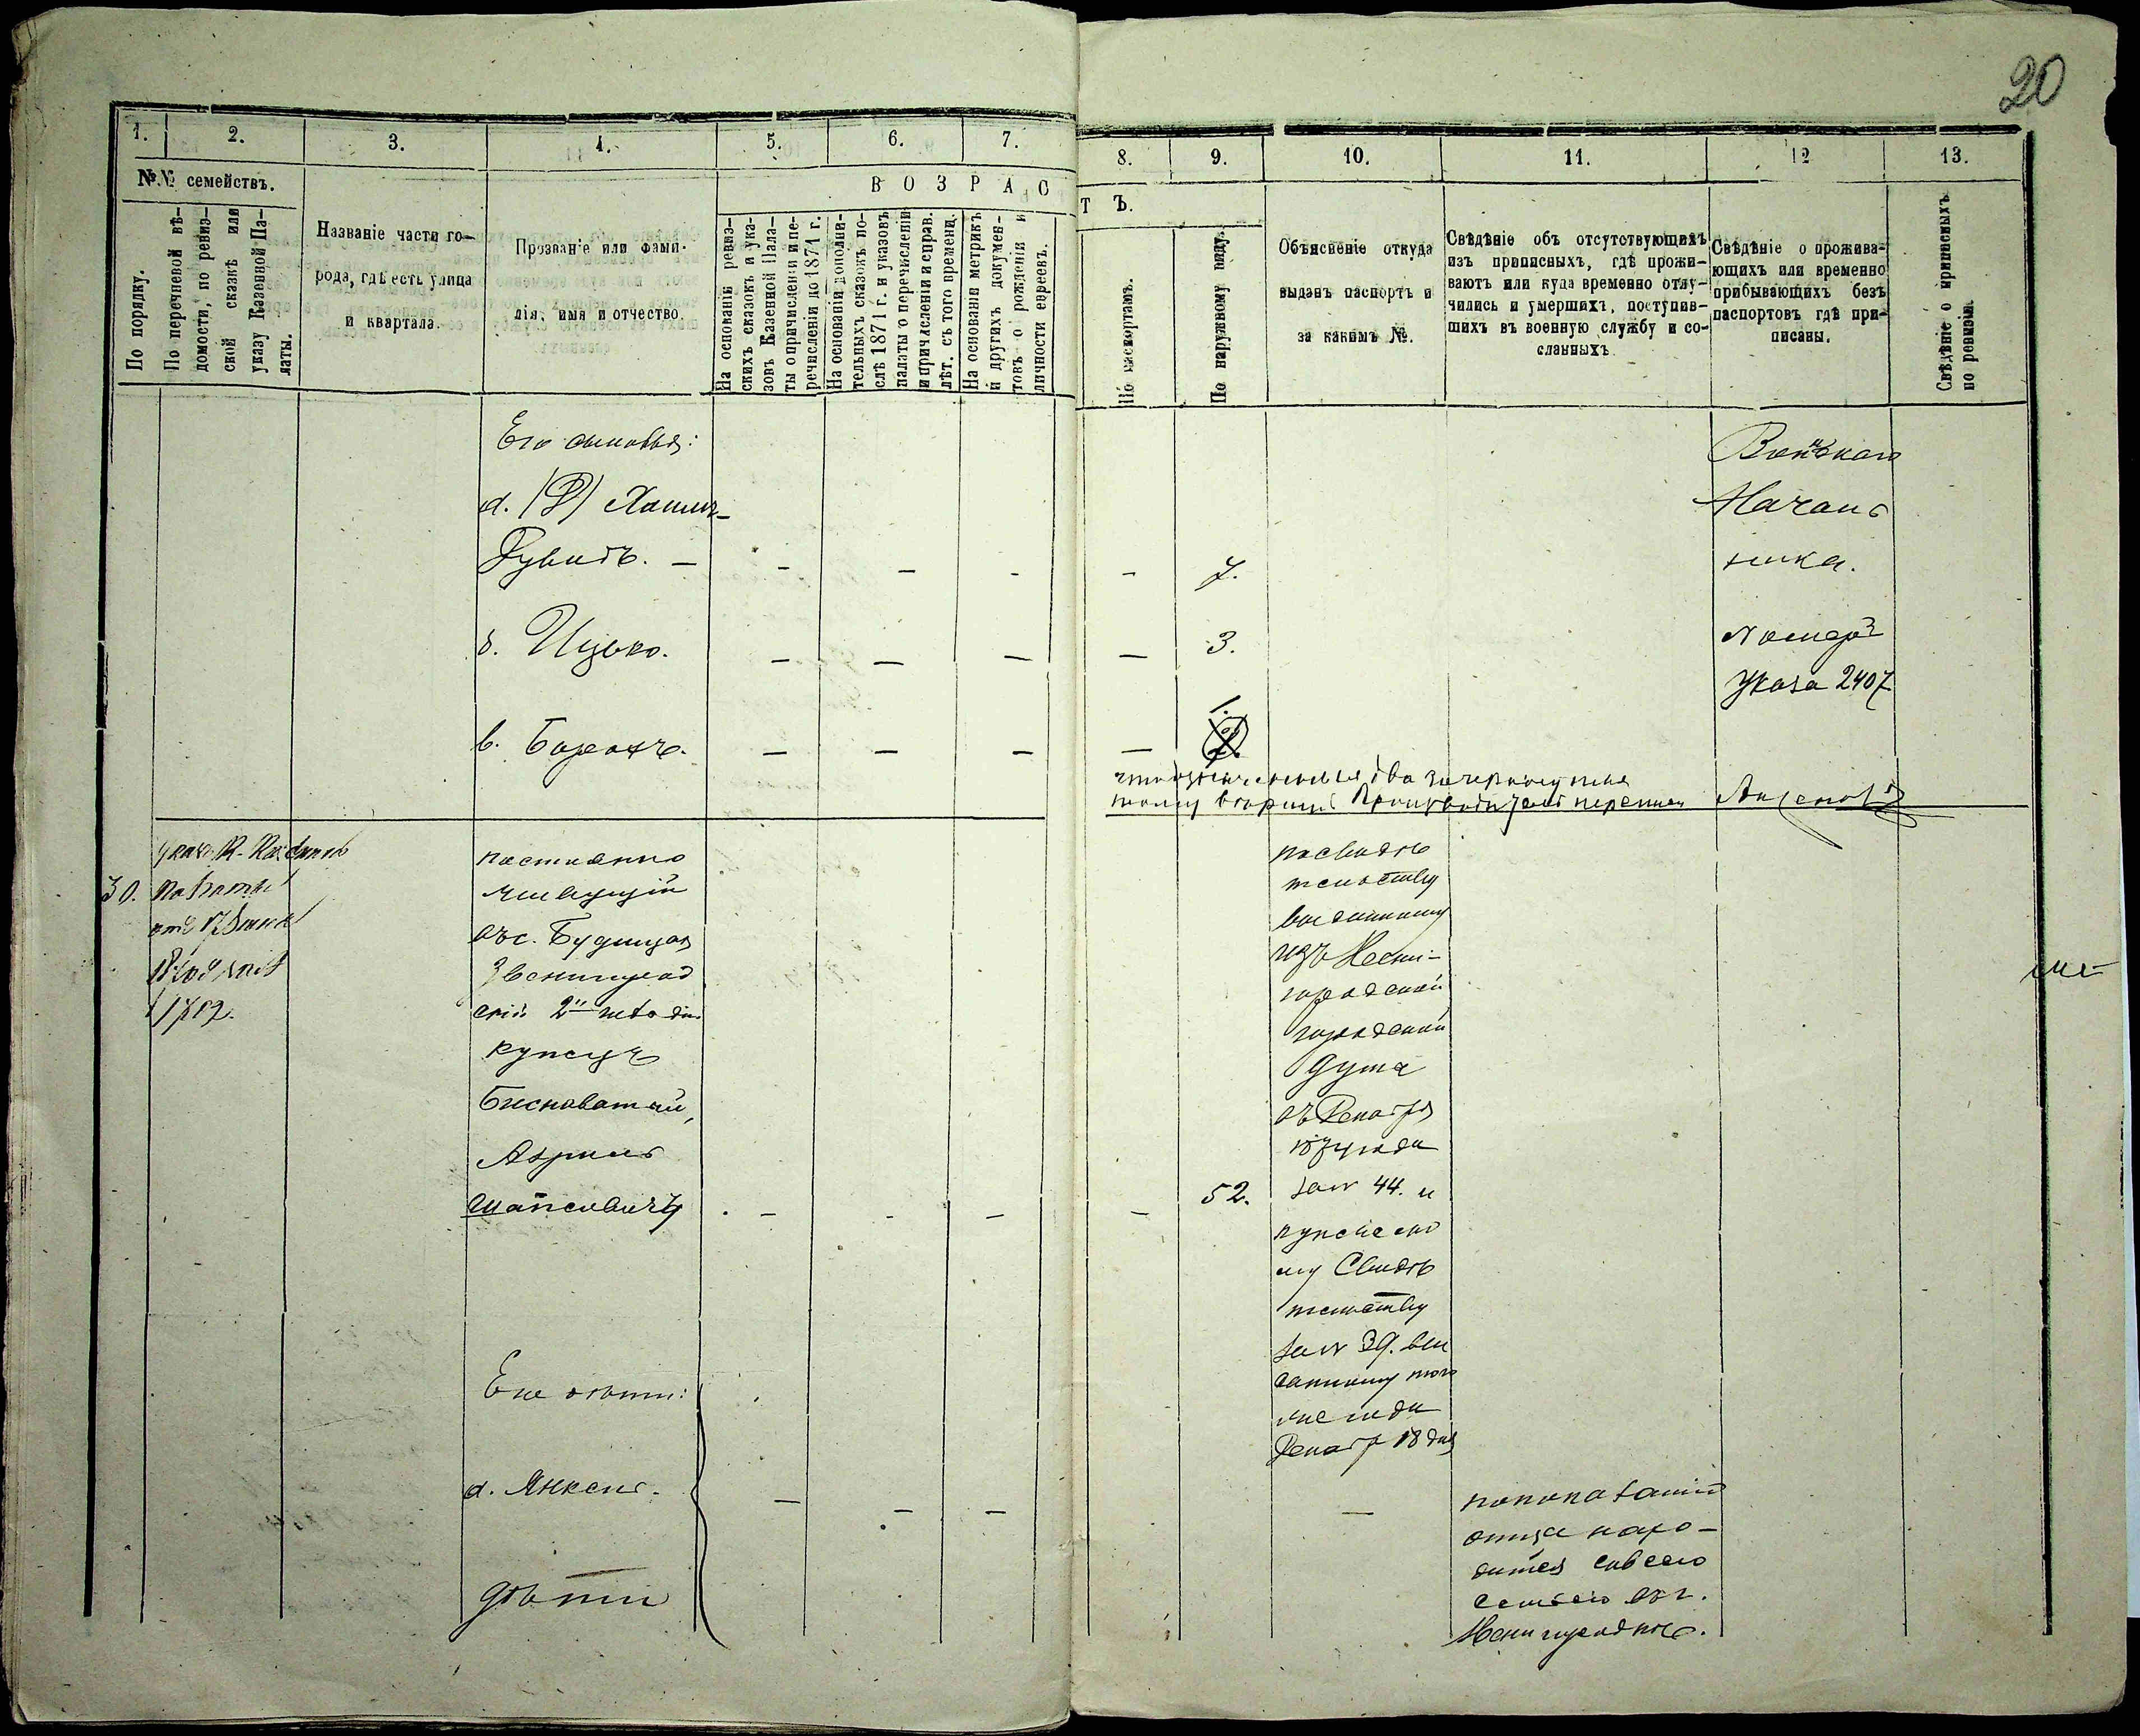 20
1. 2. 3. 4. 5. 6. 7. 8. 9. 10. 11. 12 13.
№№ семействъ.
По порядку.
По перечневой вѣ-
домости, по ревиз-
ской сказкѣ или
указу Казенной Па-
латы.
Названіе части го-
рода, гдѣ есть улица
и квартала.
Прозваніе или фами-
лія, имя и отчество.
ВОЗРАСТЪ.
На основаніи ревиз-
скихъ сказокъ и ука-
зовъ Казенной Пала-
ты о причисленіи и пе-
речисленіи до 1871 г.
На основаніи дополни-
тельныхъ сказокъ по-
слѣ 1871 г. и указовъ
палаты о перечисленіи
и причисленіи и справ.
лѣт. съ того временид.
На основаніи метрикъ
и другихъ докумен-
товъ о рожденіи и
личности евреевъ.
По паспортамъ.
По наружному виду.
Объясненіе откуда
выданъ паспортъ и
за какимъ №.
Свѣдѣніе объ отсутствующихъ
изъ приписныхъ, гдѣ прожи-
ваютъ или куда временно отлу-
чились и умершихъ, поступив-
шихъ въ военную службу и со-
сланныхъ
Свѣдѣніе о прожива-
ющихъ или временно
прибывающихъ безъ
паспортовъ гдѣ при-
писаны.
Свѣдѣніе о приписныхъ
по ревизіи.
Его сыновья:
а. (Р)
Рувинъ. — – – - - 7.
б. Ицько. – – – – 3.
в. Борохъ. – – – – 1. 2.
Воинскаго
Началь
ника.
Номеръ
Указа 2407
30.
1782.
постоянно
живущій
въ с. Будищах
Звенигород
скій 2й гильдіи
купецъ
Бесноватый,
Азриль
Шапсовичъ - - - - 52.
посвидѣ
тельству
выданному
изъ Звени-
городской
городской
Думы
въ Декабрѣ
1874 года
за № 44. и
купческо
му Свидѣ
тельству
за № 39. вы
данному того
же года
Декабр 18 дня
Его дѣти:
а. Янкель. – – – –
дѣти
по показанію
отца нахо-
дится совсею
семьею въ г.
Звенигородкѣ.